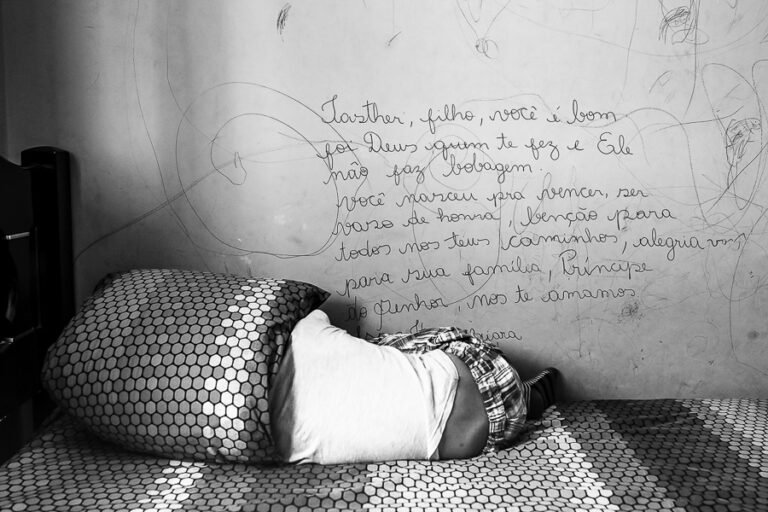 Tasther, filho, você é bom
foi Deus quem te fez e Ele
não faz bobagem.
você nasceu pra vencer, ser
vaso de honra, benção para
todos nos teus caminhos, alegria
para sua família, Príncipe
do Senhor, nos te amamos